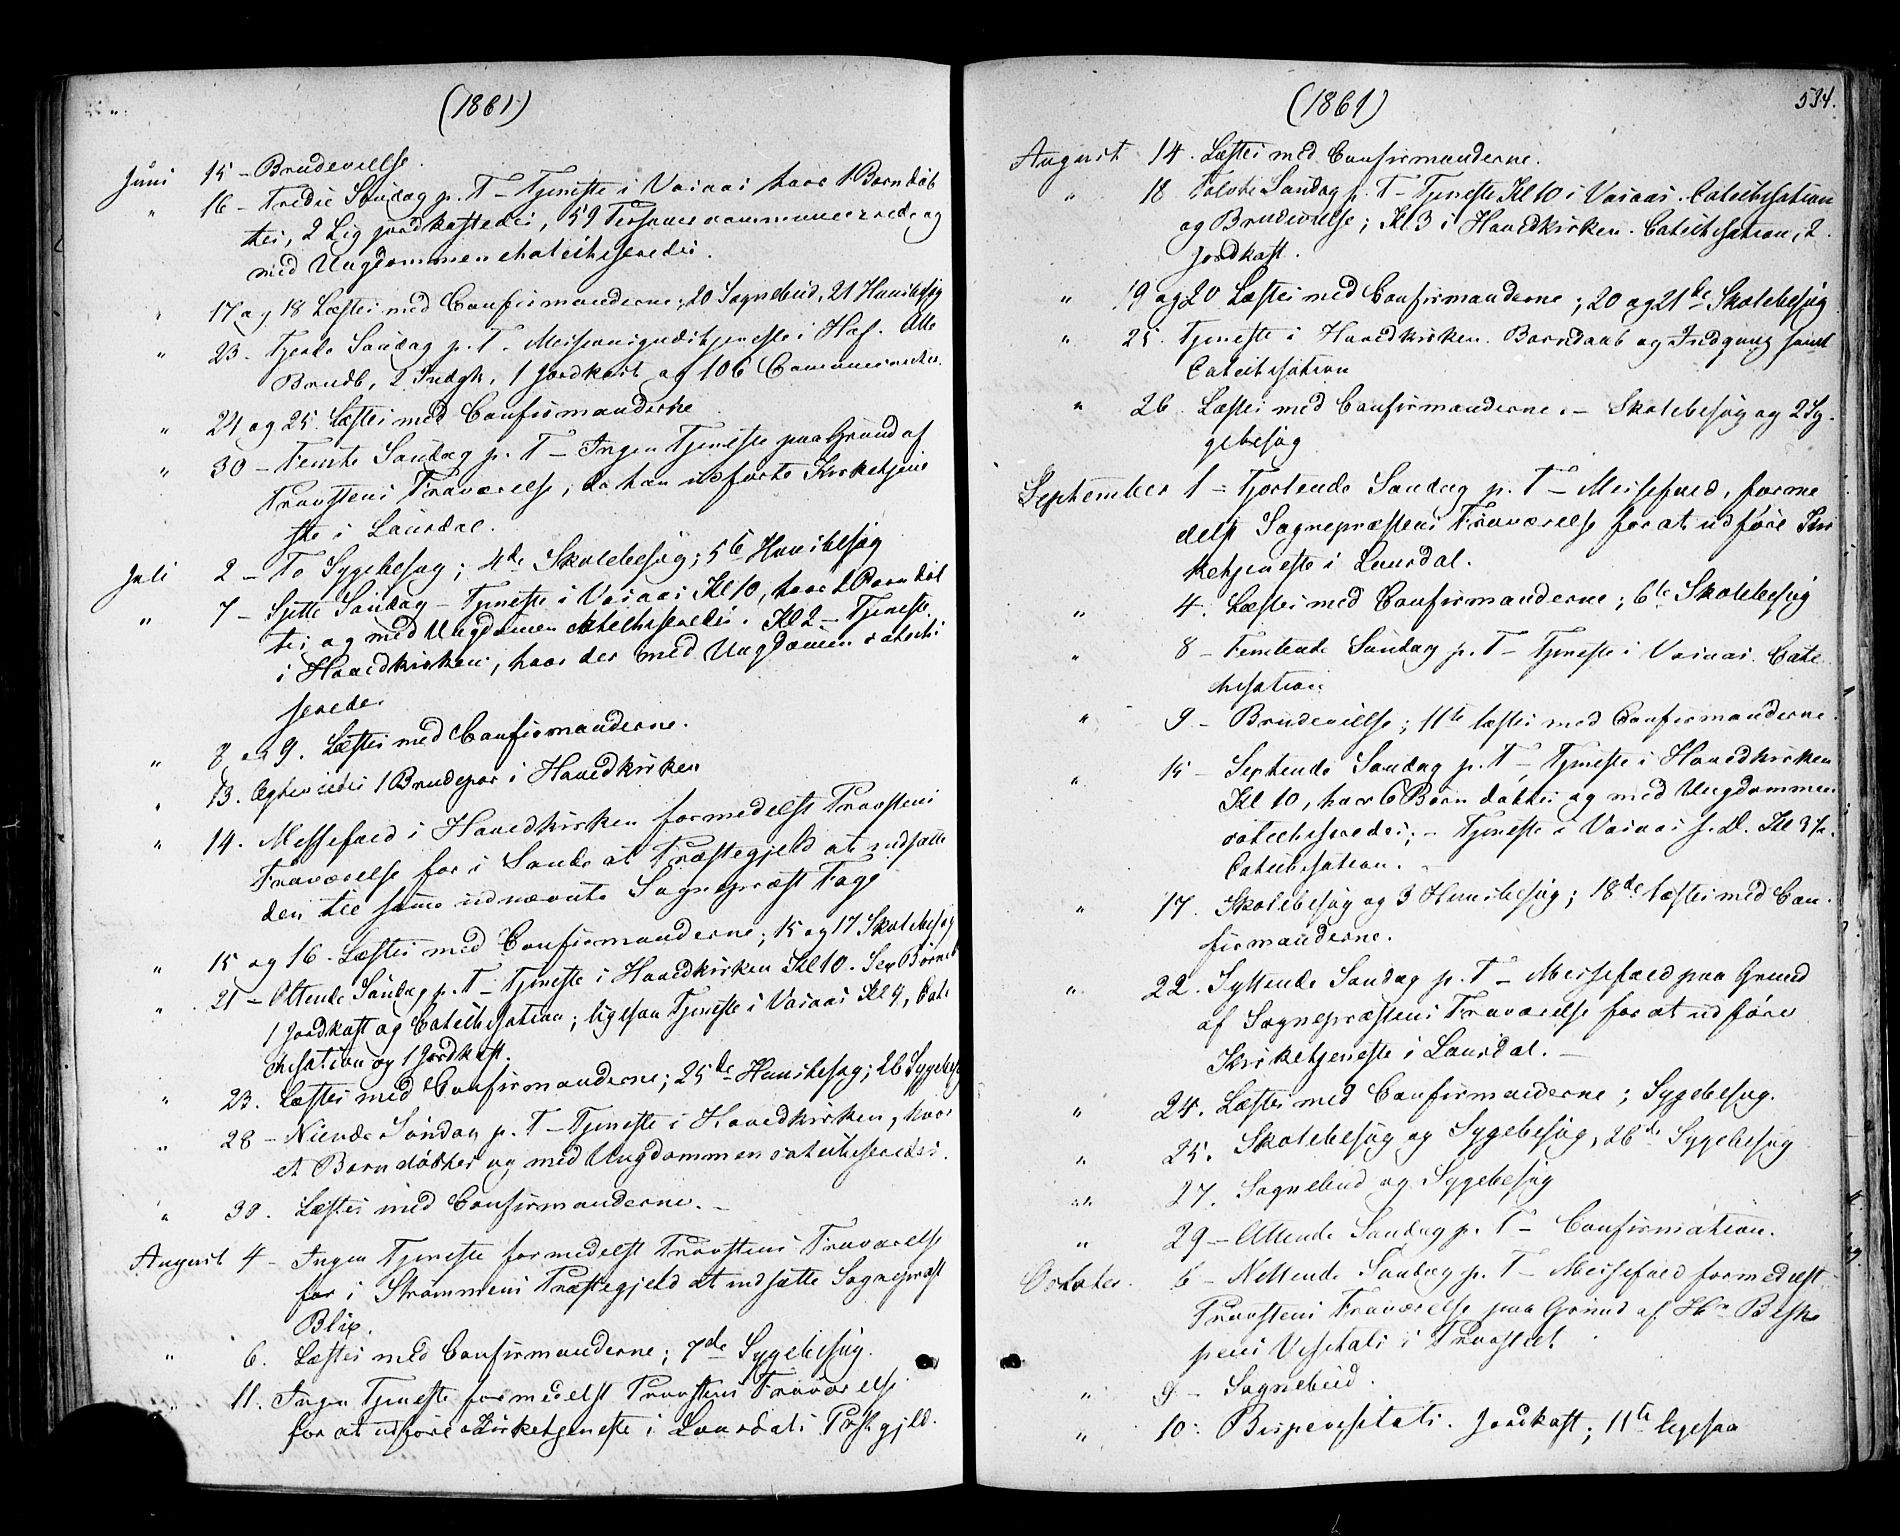 (1861)
Juni 15 - Brudevielse.
" 16 - Tredie Søndag p. T - Tjeneste i Vaiaas hvor 1 Barn døb
tes, 2 Lig jordkastedes, 59 Personer communicerede og
med Ungdommen chatechiseredes.
" 17 og 18 Læstes med Confirmanderne; 20 Sognebud, 21 Huusbesøg
" 23. Fjerde Søndag p. T. Missionsgudstjeneste i Hof. Otte
Brudb, 2 Indgk, 1 Jordkast og 106 Communicanter.
" 24 og 25. Læstes med Confirmanderne
" 30 - Femte Søndag p. T - Ingen Tjeneste paa Grund af
Provstens Fraværelse, da han udførte Kirketjene
ste i Laurdal.
Juli 2 - To Sygebesøg; 4de Skolebesøg; 5te Huusbesøg
" 7 - Sjette Søndag - Tjeneste i Vaiaas Kl 10, hvor 2 Børn døb
tes og med Ungdommen chatechiseredes. Kl 2 - Tjeneste
i Hovedkirken, hvor der med Ungdommen catechi
seredes
" 8 og 9. Læstes med Confirmanderne.
" 13. Ægteviedes 1 Brudepar i Hovedkirken
" 14. Messefald i Hovedkirken formedelst Provstens
Fraværelse for i Sande at Præstegjeld at indsætte
den til samme udnævnte Sognepræst Fage
" 15 og 16. Læstes med Confirmanderne; 15 og 17 Skolebesøg
" 21 - Ottende Søndag p. T - Tjeneste i Hovedkirken Kl 10. Sex Børned
1 Jordkast og Catechisation; ligesaa Tjeneste i Vaiaas Kl 4, Cate
chisation og 1 Jordkast.
" 23. Læstes med Confirmanderne; 25de Huusbesøg; 26 Sygebesøg
" 28 - Niende Søndag p. T - Tjeneste i Hovedkirken, hvor
et Barn døbtes og med Ungdommen catechiseredes.
" 30. Læstes med Confirmanderne. -
August 4 - Ingen Tjeneste formedelst Provstens Fraværelse
for i Strømmens Præstegjeld at indsætte Sognepræst
Blix.
" 6. Læstes med Confirmanderne; 7de Sygebesøg.
" 11. Ingen Tjeneste formedelst Provstens Fraværelse
for at udføre Kirketjeneste i Laurdals Præstgjeld.
(1861)
534.
August 14. Læstes med Confirmanderne.
" 18 Tolvte Søndag p. T - Tjeneste Kl 10 i Vaiaas. Catechisation
og Brudevielse; Kl 3 i Hovedkirken. Catechisation, 2
Jordkast.
" 19 og 20 Læstes med Confirmanderne; 20 og 21de Skolebesøg
" 25. Tjeneste i Hovedkirken. Barnedaab og Indgang samt
Catechisation
" 26 Læstes med Confirmanderne. - Skolebesøg og 2 Sy-
gebesøg
September 1 - Fjortende Søndag p. T - Messefald, forme
delst Sognepræstens Fraværelse for at udføre Kir
ketjeneste i Laurdal.
" 4. Læstes med Confirmanderne; 6te Skolebesøg
" 8 - Femtende Søndag p. T - Tjeneste i Vaiaas. Cate
chisation
" 9 - Brudevielse; 11te læstes med Confirmanderne.
" 15 - Sextende Søndag p. T - Tjeneste i Hovedkirken
Kl 10, hvor 6 Børn døbtes og med Ungdommen
catechiseredes; - Tjeneste i Vaiaas s. D. Kl 3½.
Catechisation.
" 17. Skolebesøg og 3 Huusbesøg; 18de læstes med Con-
firmanderne.
" 22. Syttende Søndag p. T - Messefald paa Grund
af Sognepræstens Fraværelse for at udføre
Kirketjeneste i Laurdal. -
" 24. Læstes med Confirmanderne; Sygebesøg.
" 25. Skolebesøg og Sygebesøg, 26de Sygebesøg
" 27. Sognebud og Sygebesøg
" 29 - Attende Søndag p. T - Confirmation.
October. 6 - Nittende Søndag p. T - Messefald formedelst
Provstens Fraværelse paa Grund af Hr Bisko
pens Visitats i Provstiet.
" 9 - Sognebud.
" 10. Bispevisitats. Jordkast; 11te ligesaa